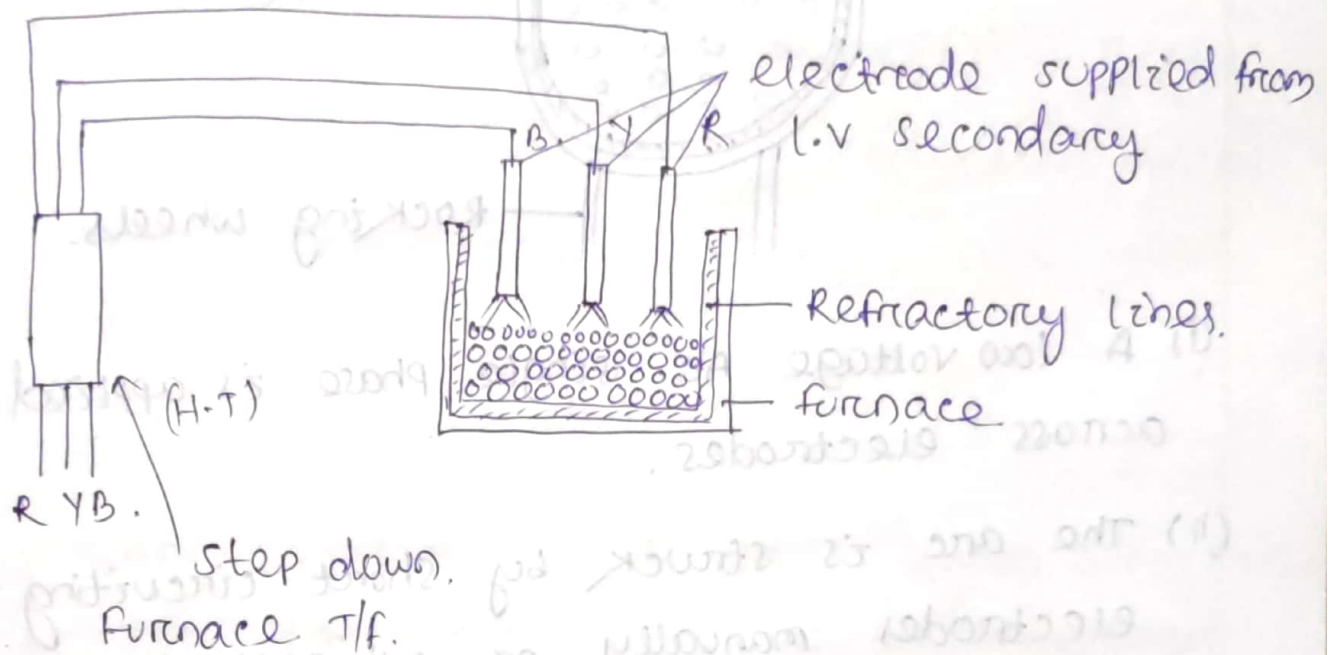 electrode supplied from
l.v secondary
B.
Y
R
Refractory lines.
furnace
(H.T)
R Y B.
Step down.
Furnace T/f.